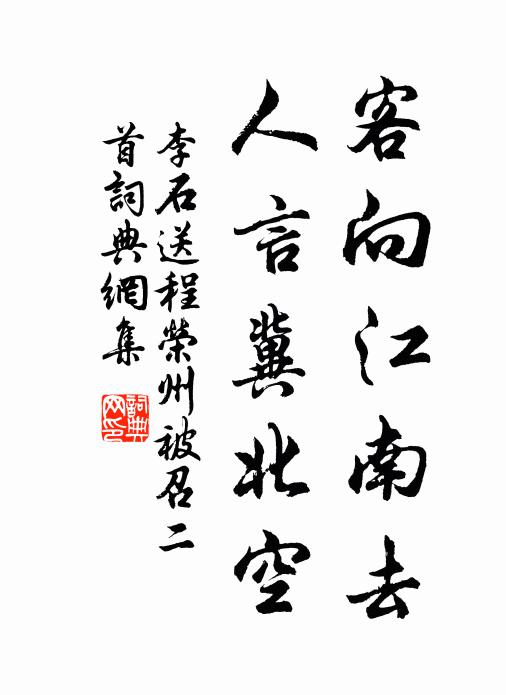 客向江南去
人言冀北空
李石送程榮州被召二
首詞典網集
詞典網印